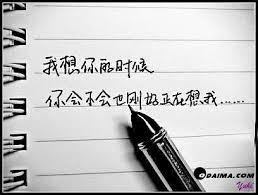 我想你的时候
你会不会也刚好正在想我……
DAIMA.COM
Yuki